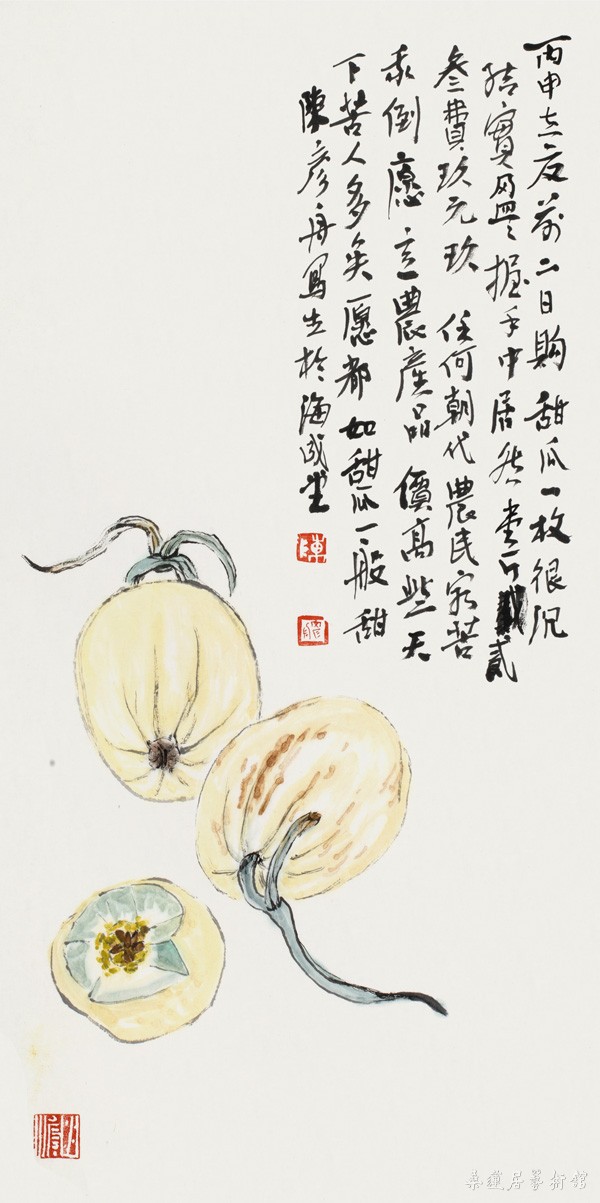 丙申立夏前二日購甜瓜一枚很沉
結實握手中居然壹斤貳
叁費玖元玖 任何朝代農民最苦
我倒愿意農產品價高些天
下苦人多矣愿都如甜瓜一般甜
陳彥舟寫生於海成堂
陳
桑蓮居藝術館